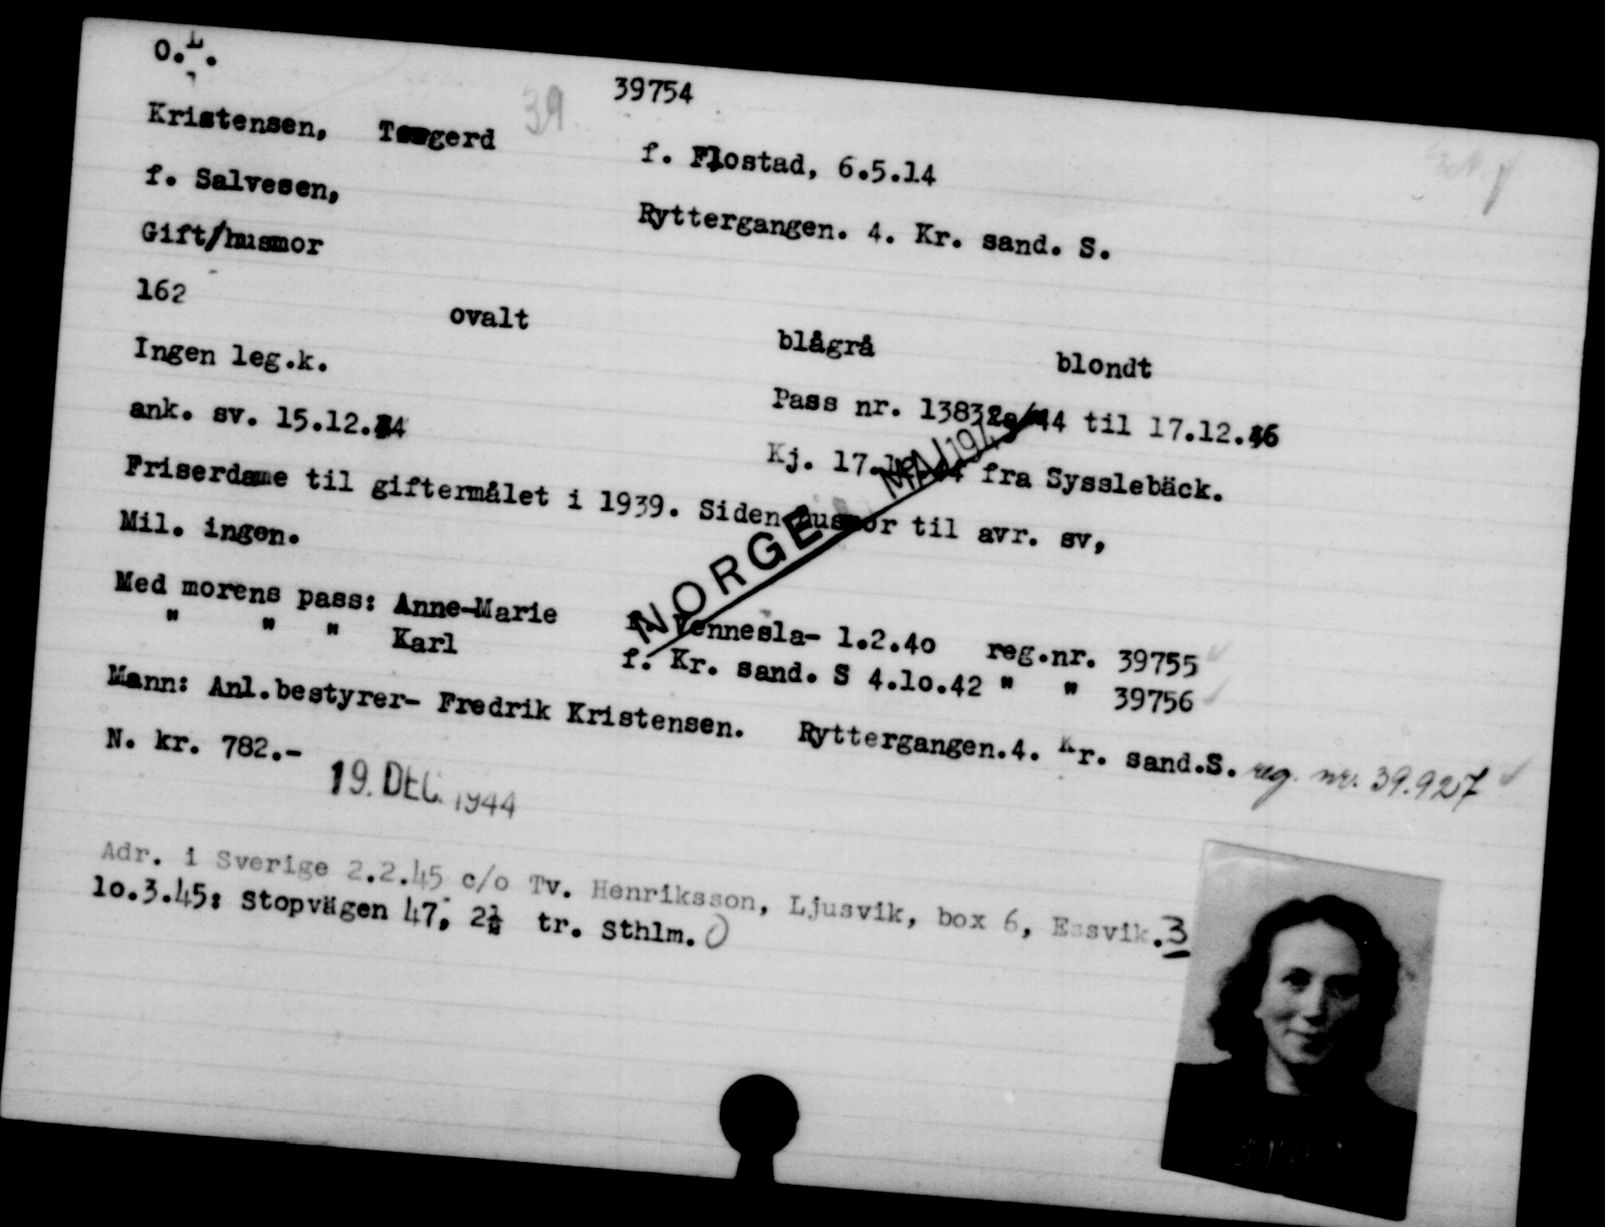 O.L.
39754
39
Kristensen, Torgerd
f. Flostad, 6.5.14
f. Salvesen,
Ryttergangen. 4. Kr. sand. S.
Gift/husmor
162 ovalt blågrå blondt
Ingen leg.k.
Pass nr. til 17.12.46
ank. sv. 15.12.44
Kj. fra Sysslebäck.
Friserdame til giftermålet i 1939. Siden husmor til avr. sv,
Mil. ingen.
NORGE MAJ
Med morens pass: Anne-Marie f. Vennesla- 1.2.4o reg.nr. 39755
" " " Karl f. Kr. sand. S 4.1o.42 " " 39756
Mann: Anl.bestyrer- Fredrik Kristensen. Ryttergangen.4. Kr. sand.S. reg. nr. 39.927
N. kr. 782.-
19. DEC. 1944
Adr. i Sverige 2.2.45 c/o Tv. Henriksson, Ljusvik, box 6, Essvik.3
1o.3.45: Stopvägen 47, 2½ tr. Sthlm.